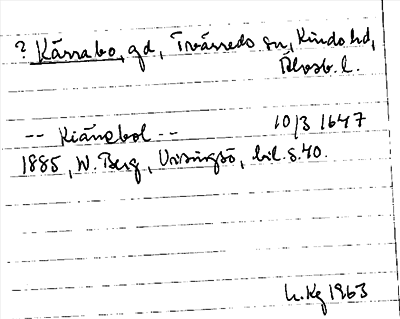 ? Kärrabo, gd, Tvärreds sn, Kinds hd,
Älvsb. l.
-- Kiärebol -- 10/3 1647
1885, W. Berg, Visingsö, bil. s. 40.
L. Kg 1963